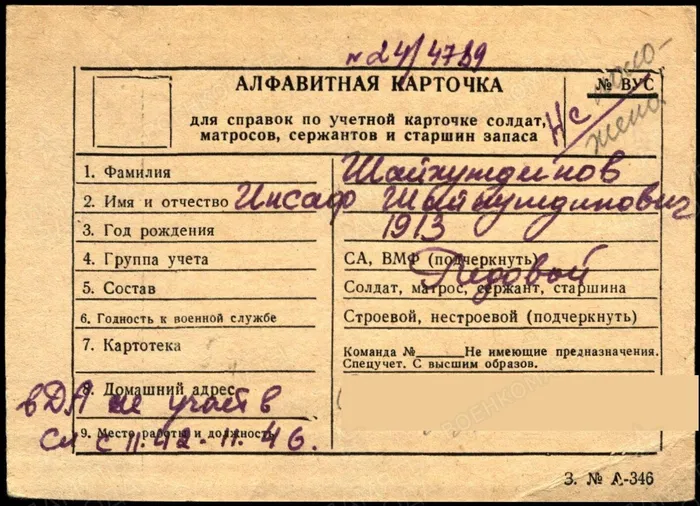 №24/4789
АЛФАВИТНАЯ КАРТОЧКА
№ ВУС
для справок по учетной карточке солдат,
матросов, сержантов и старшин запаса
н/с
1. Фамилия Шайхутдинов
2. Имя и отчество Инсаф Шайхутдинович
3. Год рождения 1913
4. Группа учета СА, ВМФ (подчеркнуть)
Рядовой
5. Состав Солдат, матрос, сержант, старшина
6. Годность к военной службе Строевой, нестроевой (подчеркнуть)
7. Картотека Команда №______Не имеющие предназначения.
Спецучет. С высшим образов.
8. Домашний адрес
в ДА не участв
9. Место работы и должность
Сл с 11.42-11.46.
З. № А-346